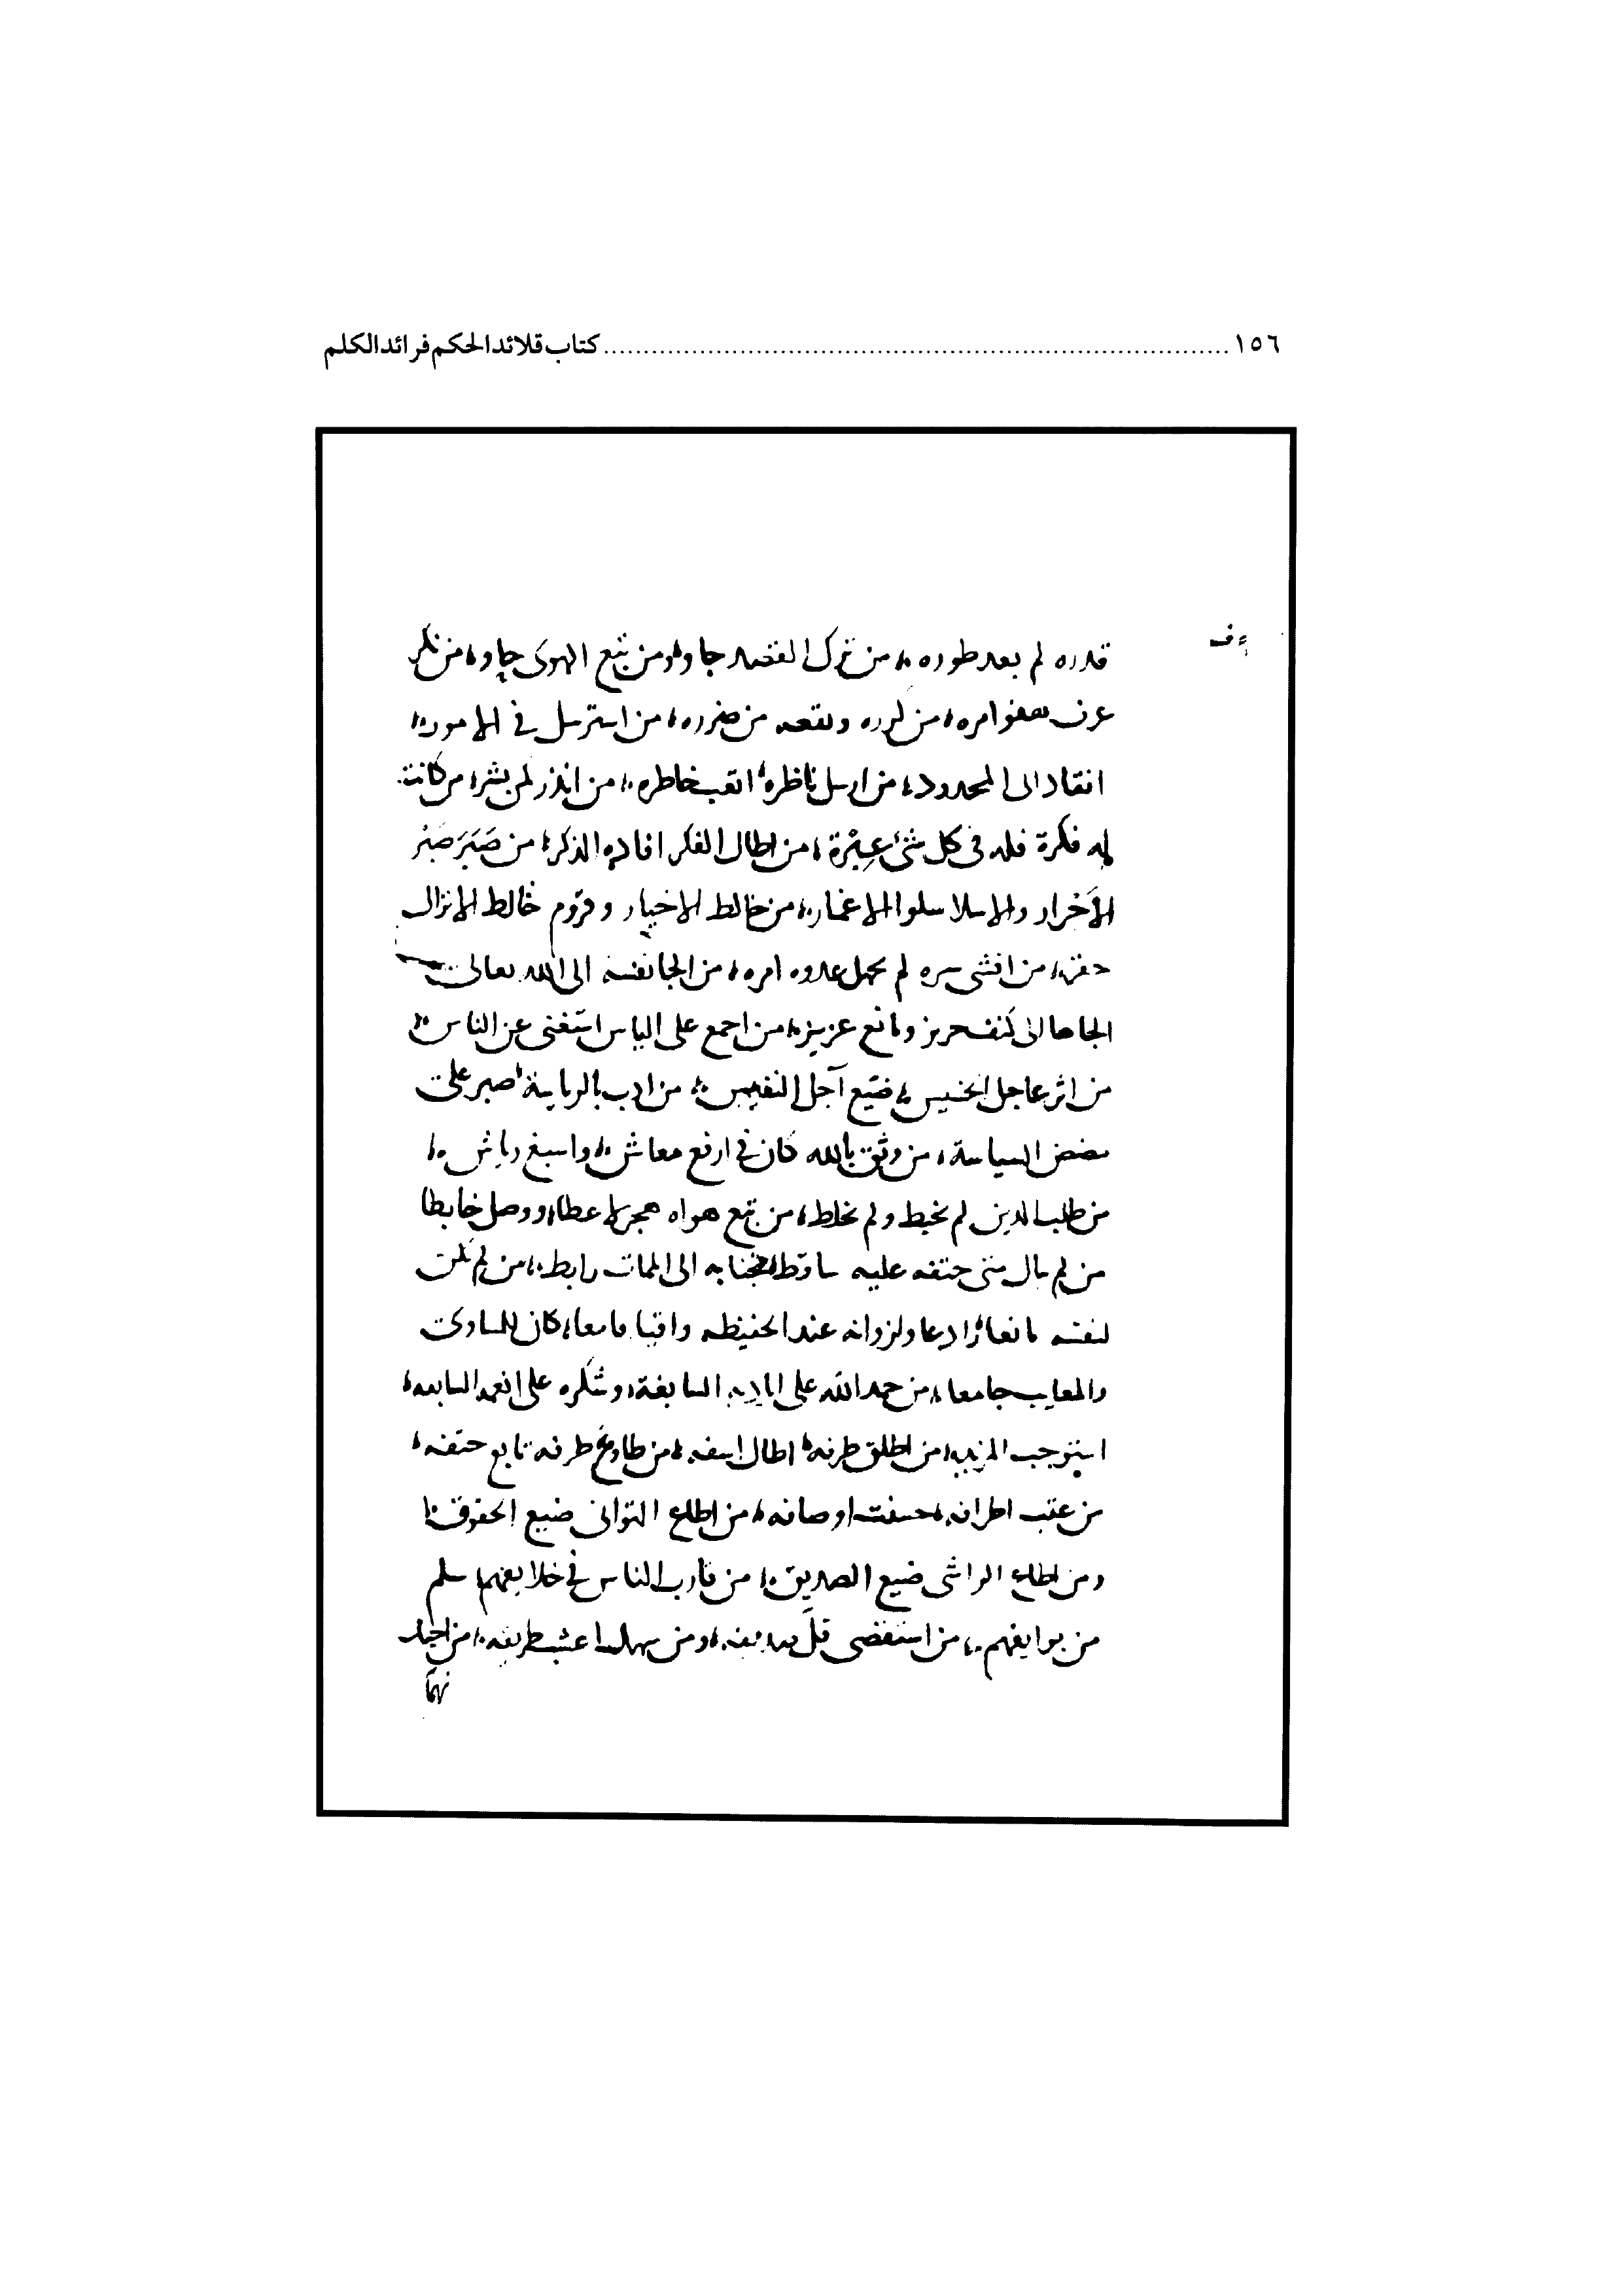 ١٥٦ ........ كتاب قلائد الحكم فرائد الكلم
قدره لم يعد طوره من ترك القصد جار ومن تبع الهوى من
عرف امره من كدره ونفعه من ضرره من استرسل في الامور
انقاد الى المحدود من ارسل ناظره اتعب خاطره من انذر كمن بشر من كانت
له فكرة فله في كل شئ عِبْرة من اطال الفكر افاده الذكر من صَبَرَ صَبْرَ
الأَحْرار والا سلا سلو الاغمار من خالط الاخيار وقر ومن خالط الانذال
حقر من افشى سره لم عدوه امره من الجا نفسه الى الله تعالى
الجاها الى كنف حريز ومانع عزيز من اجمع على الياس استغنى عن الناس
من اثر عاجل الخسيس ضيّع آجل النفيس من ادب بالرياسة صبر على
مضض السياسة من وثق بالله كان في ارفع معاش واسبغ رياش
من طلب الدين لم يخبط ولم يخلط من تبع هواه هجر ووصل خابطا
من لم يبال متى حتفه عليه ساقط الى الممات رابط من لم يكن
لنفسه مانعا رادعا ولنزواته عند الحفيظه واقما قامعا كان للمساوى
والمعايب جامعا من حمد الله على اياديه السابغة وشكره على انعمه السابعه
استوجب المزيد من اطلق طرفه اطال اسفه من طاوع طرفه تابع حتفه
من اطرافه اوصافه من اطاع التوانى ضيع الحقوق
ومن اطاع الواشى ضيع الصديق من قارب الناس في خلايقهم سلم
من بوايقهم من استقصى قلّ صديقه ومن طريقه من